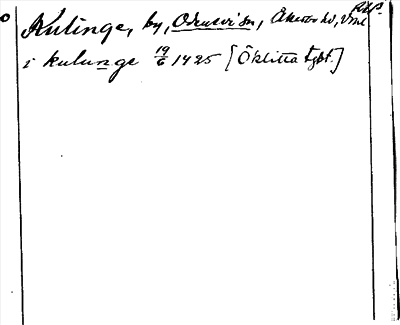 Kulinge, by, Odensvi sn, Åkerbo hd, Vml
i kulunge 19/6 1425 [Öklitta tgbt.]